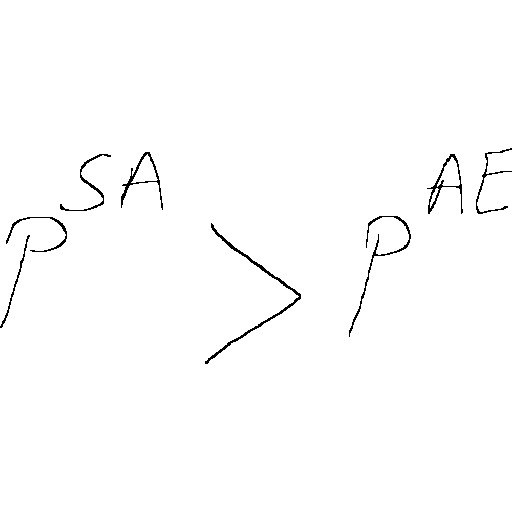 P^{SA} > P^{AE}